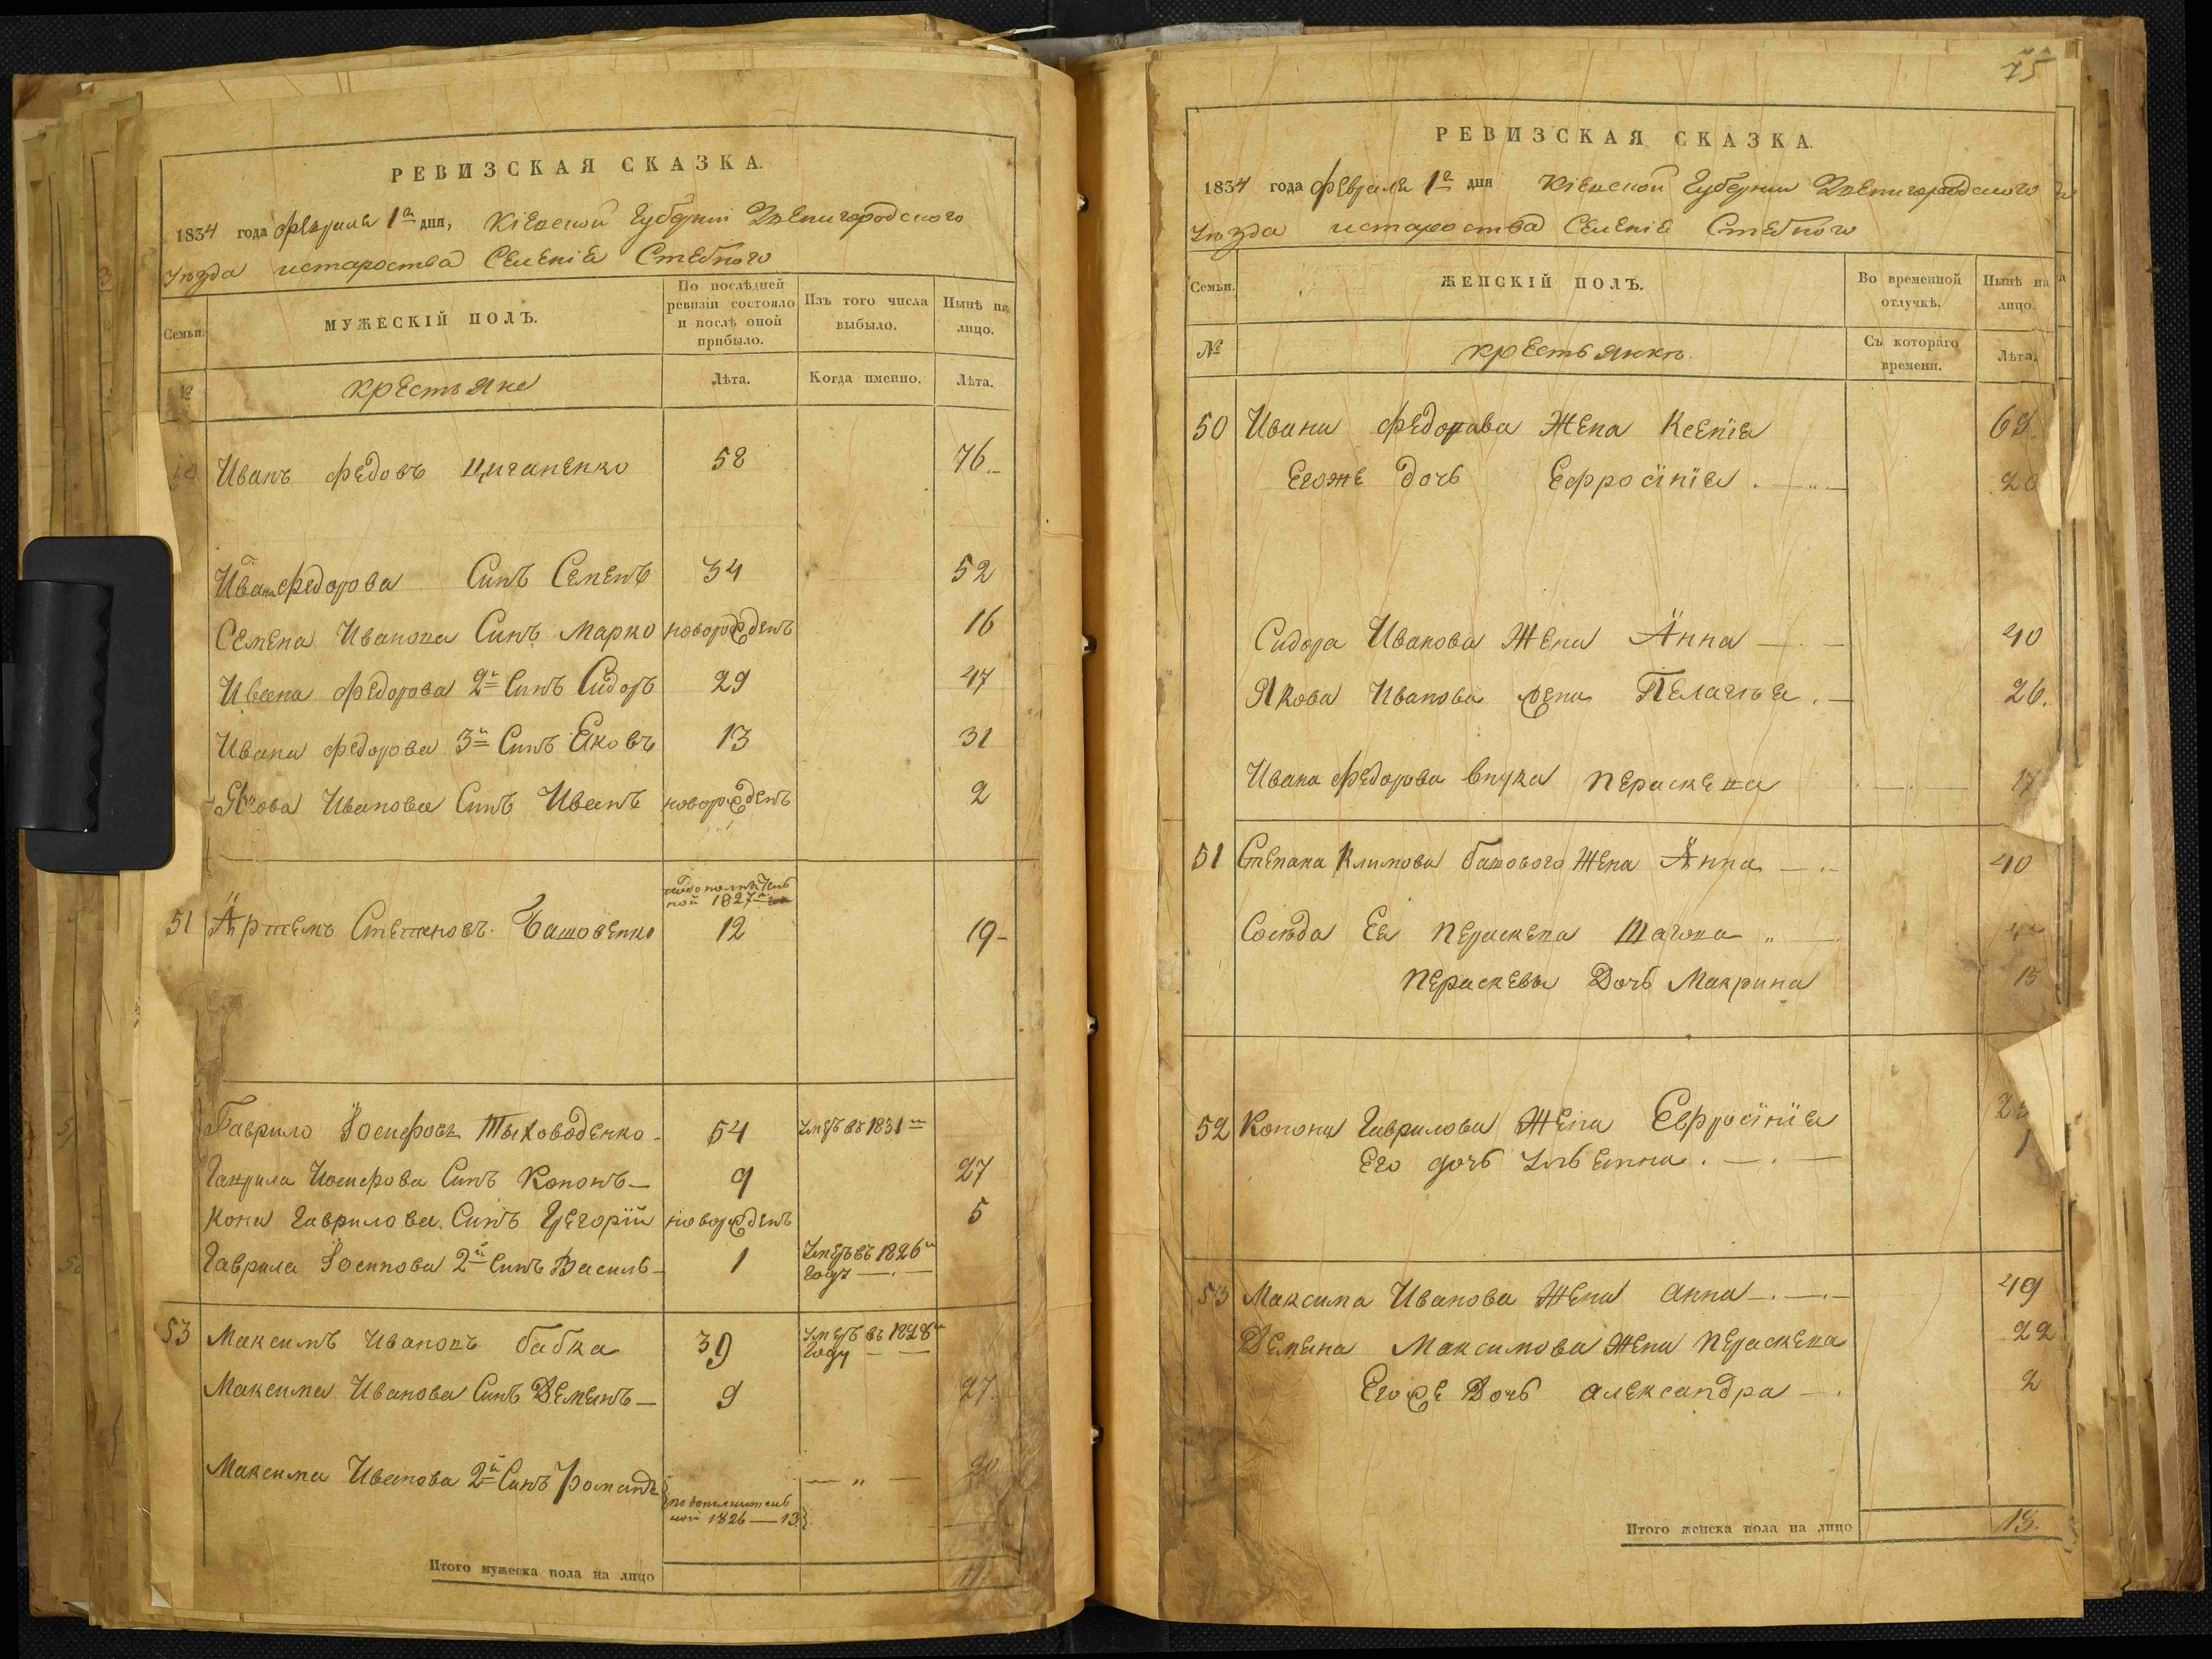 РЕВИЗСКАЯ СКАЗКА.
1834 года февраля 1го дня, Кіевской Губерніи Звенигородского
Уѣзда истароства Селенія Стебного
Семьи.
МУЖЕСКІЙ ПОЛЪ.
По послѣдней ревизіи состояло и послѣ оной прибыло.
Изъ того числа выбыло.
Нынѣ на лицо.
№
крестьяне
Лѣта.
Когда именно.
Лѣта.
50 Иванъ Федовъ Циганенко 58 76.
Ивана Федорова Синъ Семенъ 34 52
Семена Иванова Синъ Марко новорожденъ 16
Ивана Федорова 2й Синъ Сидоръ 29 47
Ивана Федорова 3й Синъ Яковъ 13 31
Якова Иванова Синъ Иванъ новорожденъ 2
подополнитель
ной 1827го
51 Артемъ Степановъ Башовенко 12 19
Гаврило Іосифовъ Тыховоденко 54 Умеръ въ 1831м
Гаврила Иосифова Синъ Кононъ 9 27
Кона Гаврилова Синъ Григорій новорожденъ 5
Гаврила Іосипова 2й Синъ Василь 1 Умеръ въ 1826м
Году
53 Максимъ Ивановъ бабка 39 Умеръ въ 1828м
Году
Максима Иванова Синъ Деменъ 9 27.
Максима Иванова 2й Синъ Романъ 20
по дополнитель
ной 1826 — 13
Итого мужеска пола на лицо 11.
75
РЕВИЗСКАЯ СКАЗКА.
1834 года февраля 1го дня Кіевской Губерніи Звенигородского
Уѣзда истароства Селенія Стебного
Семьи.
ЖЕНСКІЙ ПОЛЪ.
Во временной отлучкѣ.
Нынѣ на лицо.
№
крестьянкъ.
Съ котораго времени.
Лѣта.
50 Ивана Федорова Жена Ксенія 69.
Егоже дочь Ефросінія 20
Сидора Иванова Жена Анна 40
Якова Иванова жена Пелагея 26.
Ивана Федорова внука Пераскева 17
51 Степана Климова башового Жена Анна 40
Сосѣда Ея Пераскева
Пераскевы Дочь Макрина 15
52 Конона Гаврилова Жена Евфросінія
Его дочь Ульянна 1
53 Максима Иванова Жена Анна 49
Демена Максимова Жена Пераскева 22
Егоже Дочь Александра 2
Итого женска пола на лицо 13.